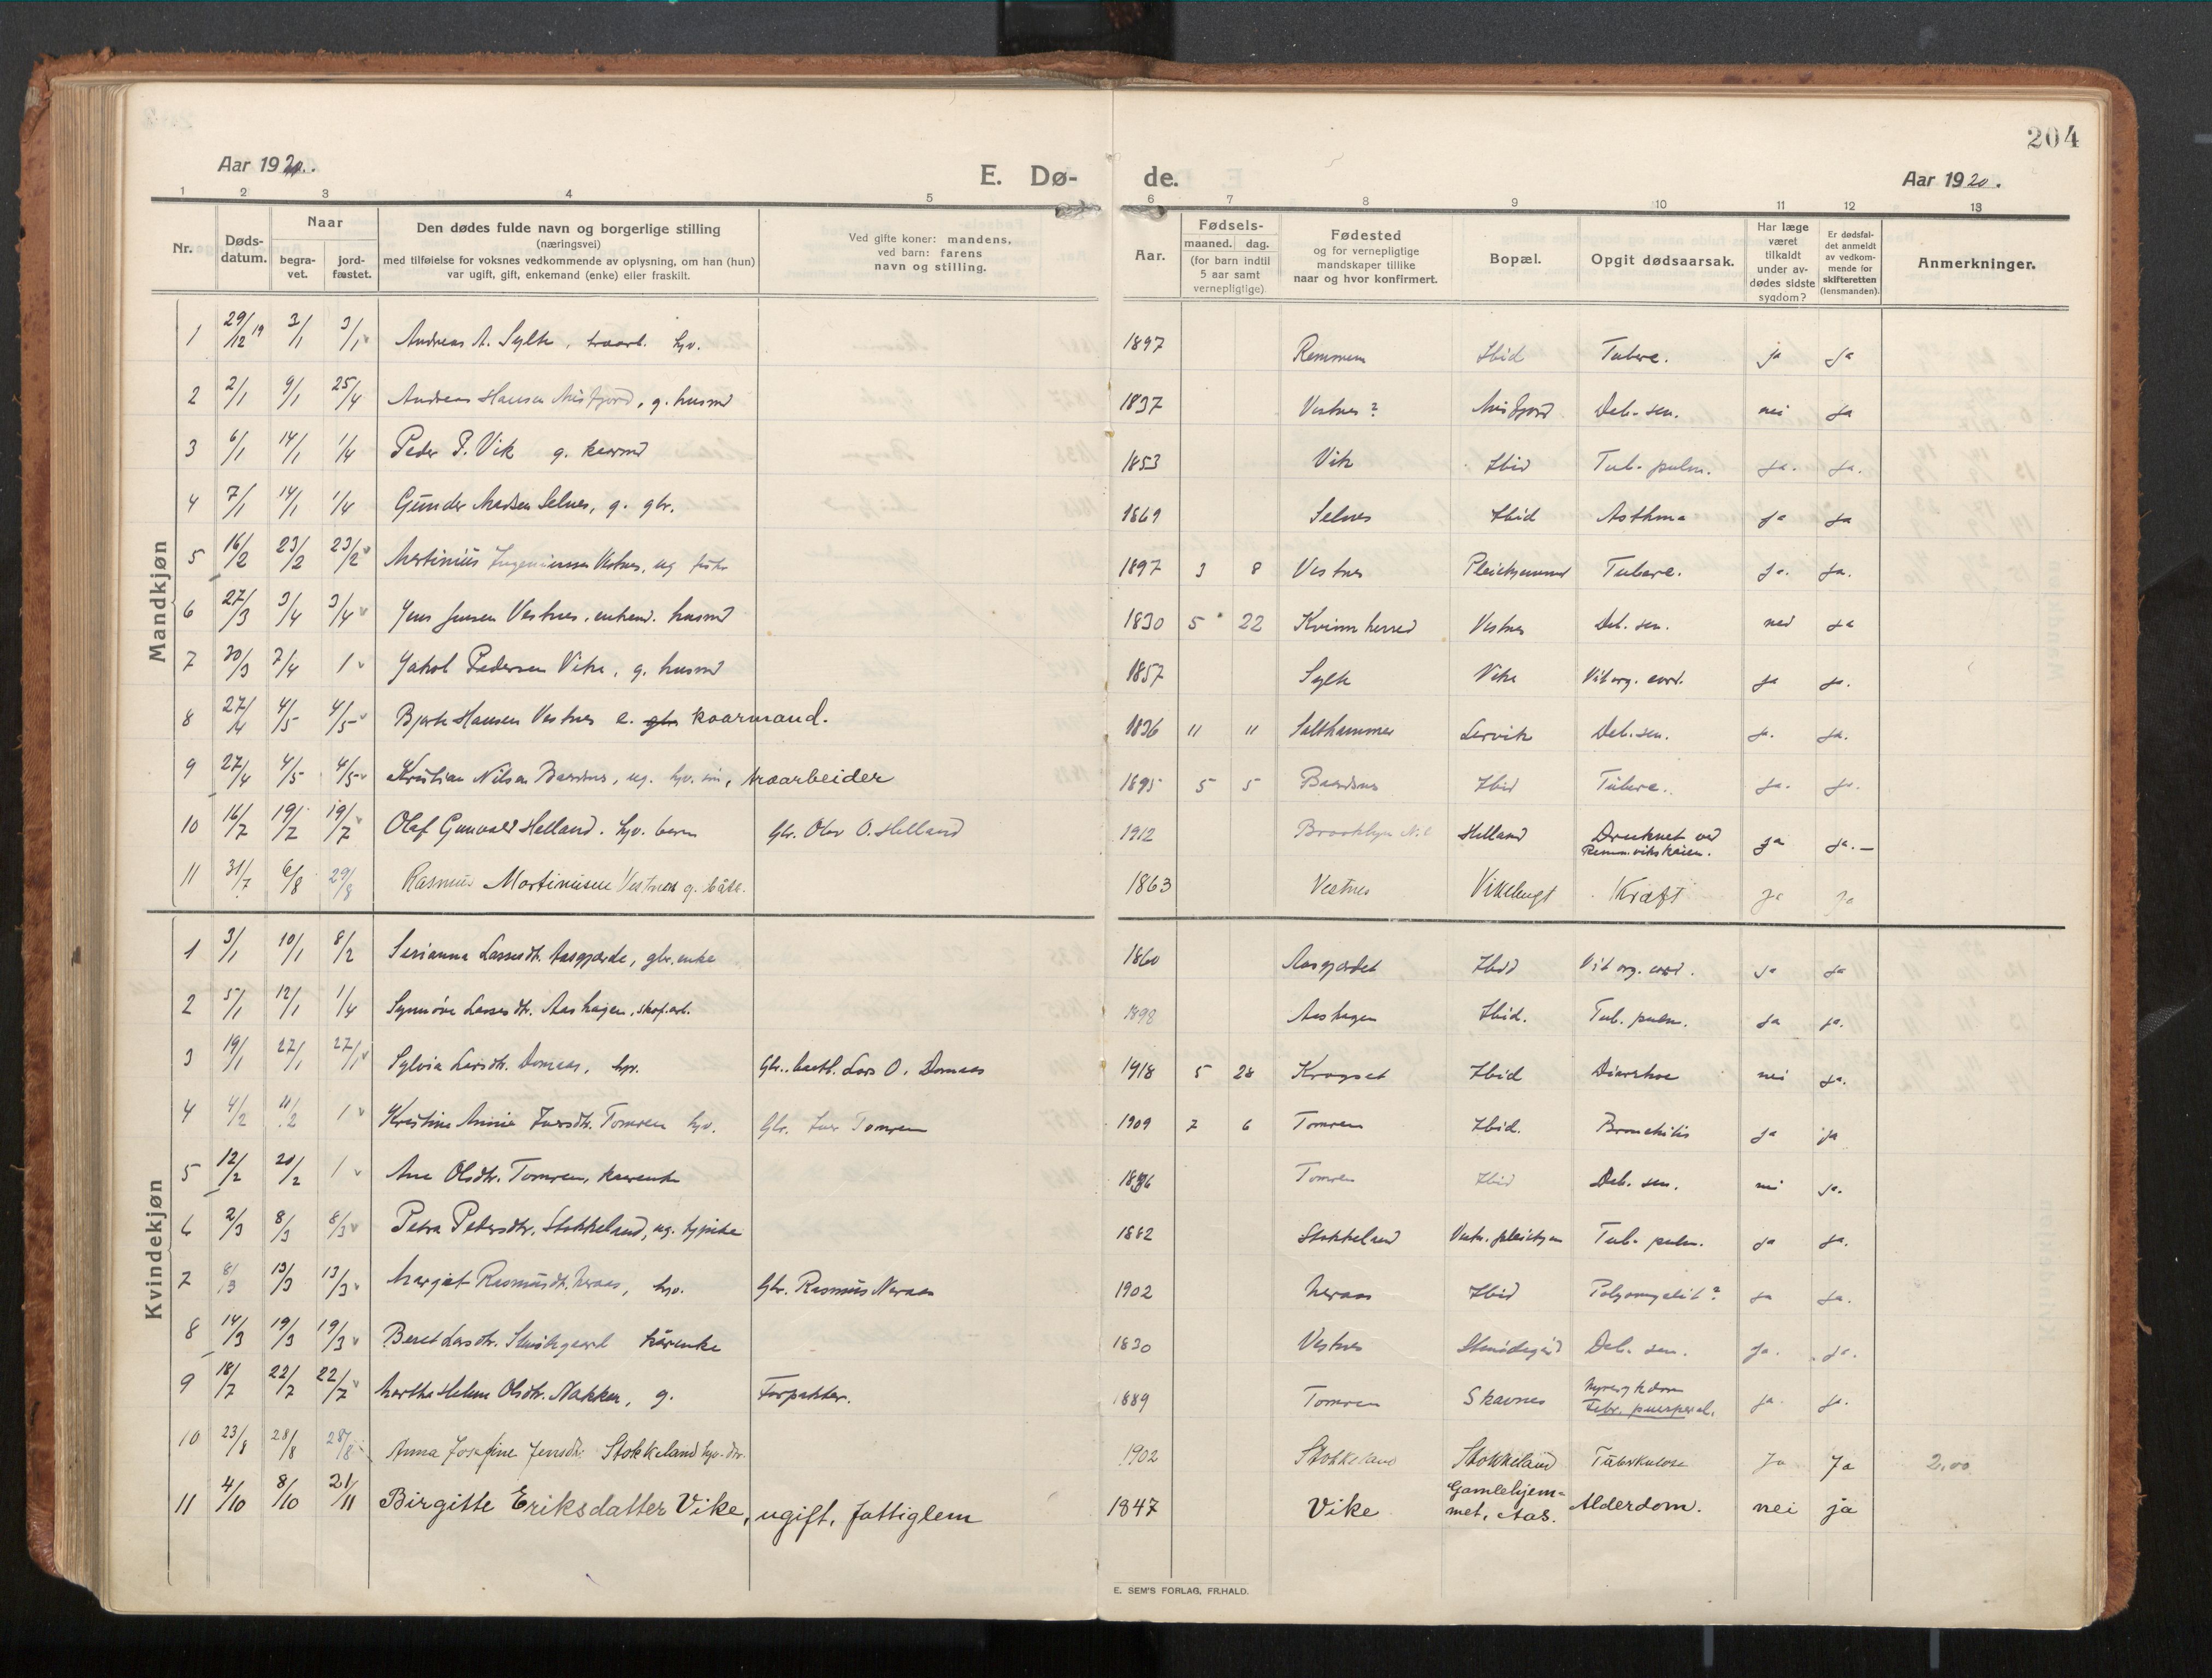 204
Aar 1920.
E. Dø-
de.
Aar 1920.
1 2 3 4 5 6 7 8 9 10 11 12 13
Nr.
Døds-
datum.
Naar
begra-
vet.
jord-
fæstet.
Den dødes fulde navn og borgerlige stilling
(næringsvei)
med tilføielse for voksnes vedkommende av oplysning, om han (hun)
var ugift, gift, enkemand (enke) eller fraskilt.
Ved gifte koner: mandens,
ved barn: farens
navn og stilling.
Aar.
Fødsels-
maaned. dag.
(for barn indtil
5 aar samt
vernepligtige)
Fødested
og for vernepligtige
mandskaper tillike
naar og hvor konfirmert.
Bopæl.
Opgit dødsaarsak.
Har læge
været
tilkaldt
under av-
dødes sidste
sygdom?
Er dødsfal-
det anmeldt
av vedkom-
mende for
skifteretten
(lensmanden).
Anmerkninger.
Mandkjøn
1 29/12 19 3/1 3/1 Andreas A. Sylte, hjv. 1897 Remmem Ibid Tuberc. ja ja
2 2/1 9/1 25/4 Andreas Hansen Misfjord, g. husmd 1837 Vestnes? Misfjord Deb. sen. nei ja
3 6/1 14/1 1/4 Peder P. Vik g. kaarmd 1853 Vik Ibid Tub. pulm. ja. ja.
4 7/1 14/1 1/4 Gunder Madsen Selnes, g. gbr. 1869 Selnes Ibid Asthma ja ja
5 16/2 23/2 23/2 Martinius Vestnes, ug 1897 3 8 Vestnes Pleiehjemmet Tuberc. ja. ja.
6 27/3 3/4 3/4 Jens Jensen Vestnes, enkemd. husmd 1830 5 22 Kvinnherred Vestnes Deb. sen. nei ja
7 30/3 7/4 1 Jakob Pedersen Vike, g. husmd 1857 Sylte Vike Vit. org. cord. ja ja.
8 27/4 4/5 4/5 Bjarte Hansen Vestnes e. gbr kaarmand. 1836 11 11 Salthammer Lervik Deb. sen. ja. ja.
9 27/4 4/5 4/5 Kristian Nilsen Baardsnes, ug. hjv. søn, traarbeider 1895 5 5 Baardsnes Ibid Tuberc. ja. ja.
10 16/7 19/7 19/7 Olaf Gunvald Helland. hjv. barn Gbr. Olav O. Helland 1912 Brooklyn Helland Druknet ved
Remmvikskaien. ja ja.—
11 31/7 6/8 29/8 Rasmus Martinusen Vestnes g. 1863 Vestnes Vikebugt Kræft ja ja
Kvindekjøn
1 3/1 10/1 8/2 Serianna Lassesdtr. Aasgjærde, gbr. enke 1860 Aasgjærdet Ibid Vit. org. cord. ja ja
2 5/1 12/1 1/4 Synnøve Lassesdtr. Aashagen, 1898 Aashagen Ibid. Tub. pulm. ja ja.
3 19/1 27/1 27/1 Sylvia Larsdtr. Domaas, hjv. Gbr. Lars O. Domaas 1918 5 28 Krogset Ibid Diarrhoe nei ja.
4 4/2 11/2 1 Kristine Annie Iversdtr. Tomren hjv. Gbr. Iver Tomren 1909 7 6 Tomren Ibid. Bronchitis ja ja
5 12/2 20/2 1 Ane Olsdtr. Tomren, kaarenke 1836 Tomren Ibid Deb. sen. nei ja.
6 2/3 8/3 8/3 Petra Petersdtr. Stokkeland, ug. 1882 Stokkeland Vestn. pleiehjem Tub. pulm. ja ja.
7 8/3 13/3 13/3 Margit Rasmusdtr. Neraas, hjv. Gbr. Rasmus Neraas 1902 Neraas Ibid Polyomyelit? ja ja.
8 14/3 19/3 19/3 Beret Larsdtr. kårenke 1830 Vestnes Deb. sen. ja. ja.
9 18/7 22/7 22/7 Marthe Helene Olsdtr. Nakken, g. Forpakter. 1889 Tomren Skavnes Nyresykdom
Febr. puerperal. ja. ja.
10 23/8 28/8 28/8 Anna Josefine Jensdtr. Stokkeland hjv. dtr. 1902 Stokkeland Stokkeland Tuberkulose ja ja 2,00
11 4/10 8/10 21/11 Birgitte Eriksdatter Vike, ugift, fattiglem 1847 Vike Gamlehjem-
met, Aas. Alderdom. nei ja
E. SEM'S FORLAG, FR.HALD.